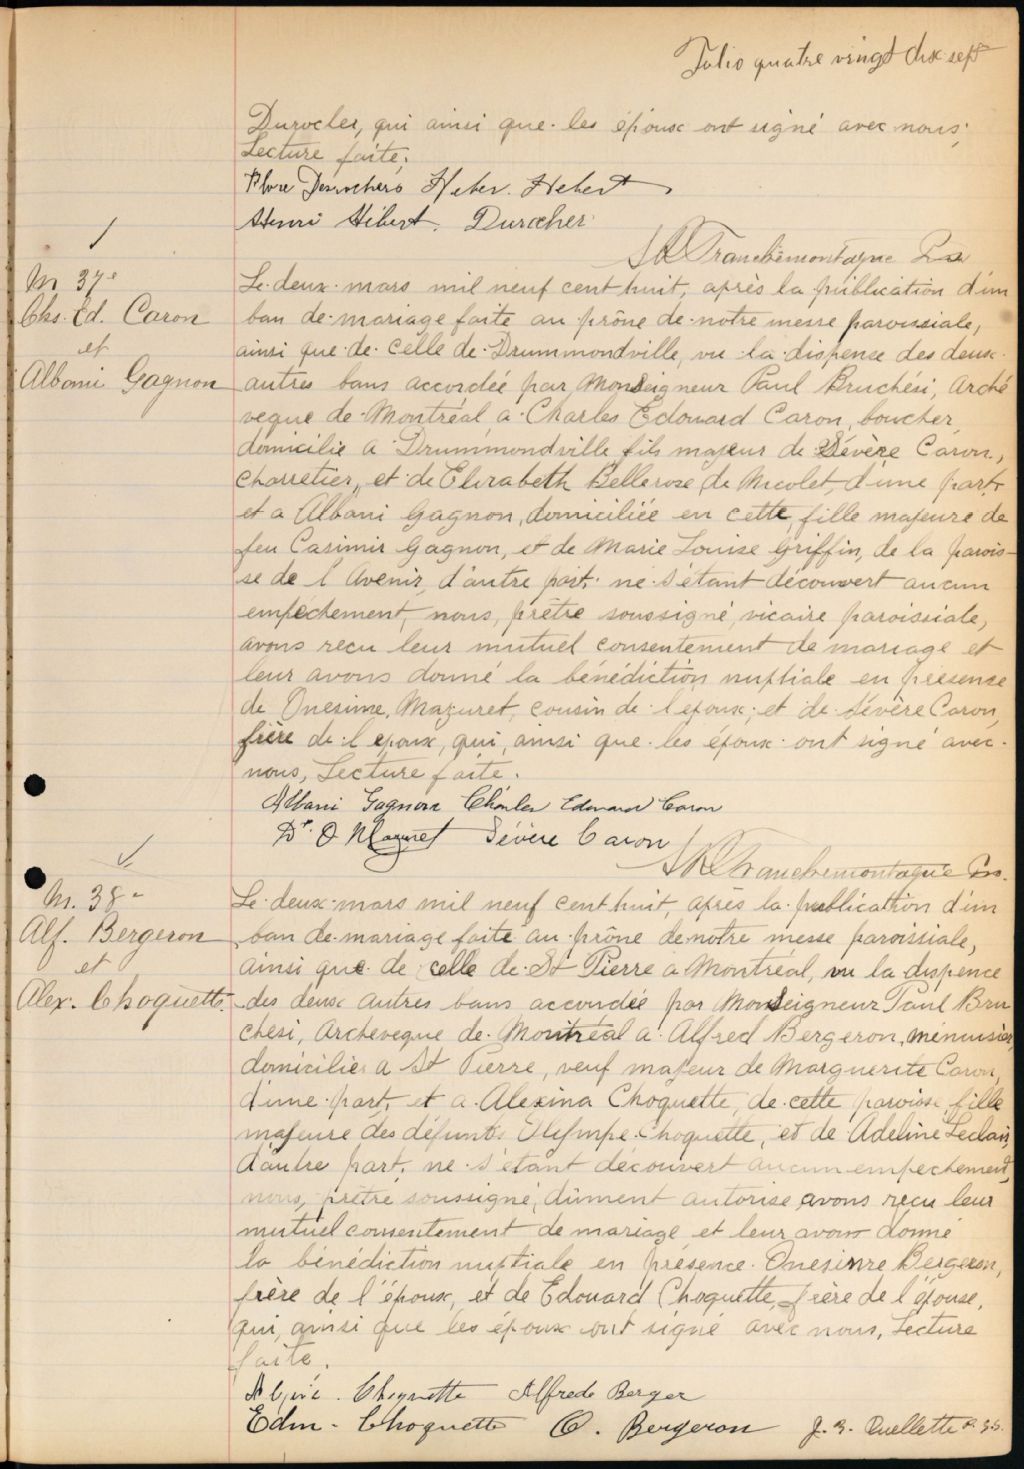 Folio quatre vingt dix sept
Durocher, qui ainsi que les époux ont signé avec nous,
Lecture faite.
Flore Desrochers Heber. Hebert
Henri Hébert. Durocher
Tranchemontagne Ptre
M 37e
Chs. Ed. Caron
et
Albani Gagnon
Le deux mars mil neuf cent huit, après la publication d'un
ban de mariage faite au prône de notre messe paroissiale,
ainsi que de celle de Drummondville, vu la dispense des deux
autres bans accordée par Monseigneur Paul Bruchési, Arche
veque de Montréal a Charles Edouard Caron, boucher,
domicilié a Drummondville fils majeur de Sévère Caron,
charretier, et de Elizabeth Bellerose, de Nicolet, d'une part,
et a Albani Gagnon, domiciliée en cette, fille majeure de
feu Casimir Gagnon, et de Marie Louise Griffin, de la parois-
se de l'Avenir, d'autre part, ne s'étant découvert aucun
empêchement, nous, prêtre soussigné, vicaire paroissiale,
avons recu leur mutuel consentement de mariage et
leur avons donné la bénédiction nuptiale en présense
de Onesime Mazuret, cousin de l'époux, et de Sévère Caron,
frère de l'epoux, qui, ainsi que les époux ont signé avec
nous, Lecture faite.
Albani Gagnon Charles Edouard Caron
Dr. O Mazuret Sévère Caron
Tranchemontagne Ptre.
M. 38e
Alf. Bergeron
et
Alex. Choquette.
Le deux mars mil neuf cent huit, après la publication d'un
ban de mariage faite au prône de notre messe paroissiale,
ainsi que de celle de St Pierre a Montréal, vu la dispence
des deux autres bans accordée par Monseigneur Paul Bru
chesi, Archeveque de Montréal a Alfred Bergeron, menuisier,
domicilié a St Pierre, veuf majeur de Marguerite Caron,
d'une part, et a Alexina Choquette, de cette paroisse, fille
majeure des défunts Olympe Choquette, et de Adeline Leclair,
d'autre part, ne s'étant découvert aucun empechement,
nous, prêtre soussigné, dûment autorisé, avons reçu leur
mutuel consentement de mariage et leur avons donné
la bénédiction nuptiale en présence Onesime Bergeron,
frère de l'époux, et de Edouard Choquette, frère de l'épouse,
qui, ainsi que les époux ont signé avec nous, Lecture
faite.
Choquette Alfrede Berger
Edm. Choquette O. Bergeron J. E. Ouellette